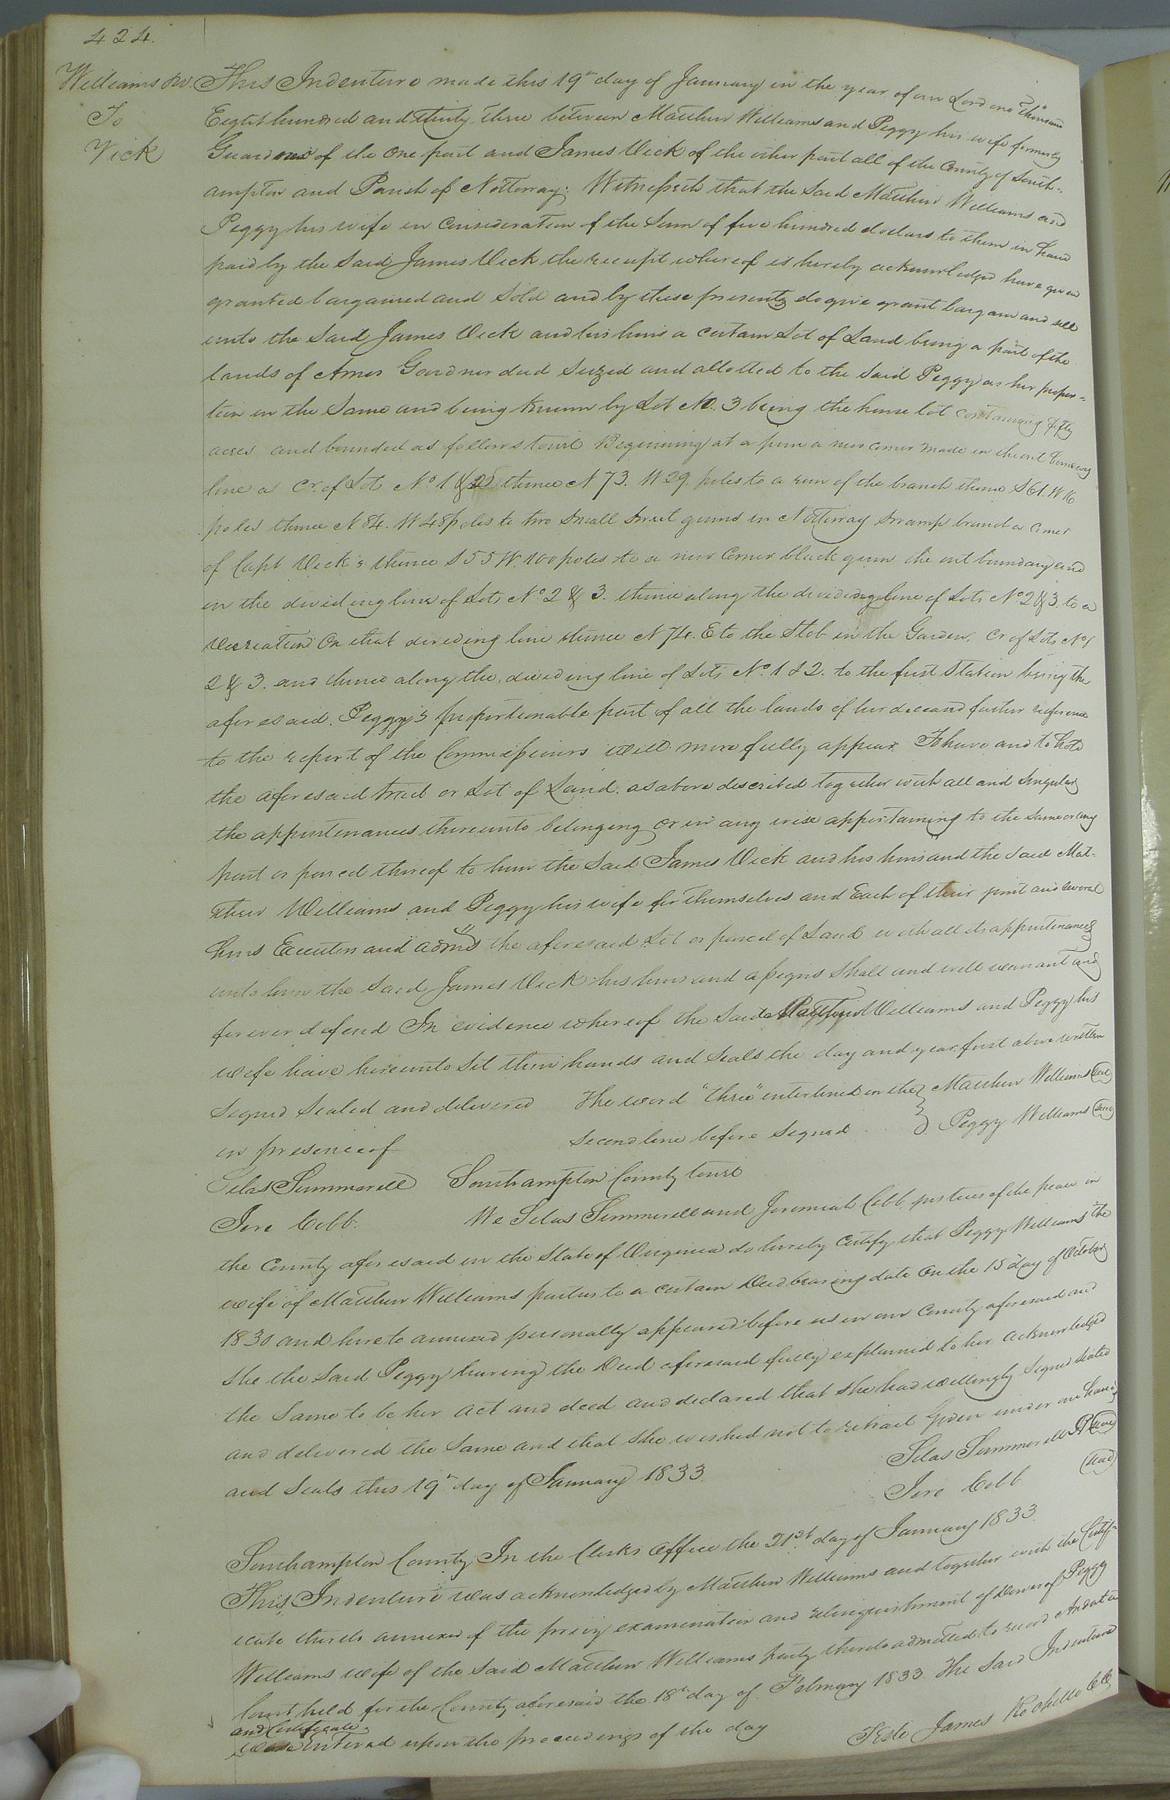 424.
Williams &c. This Indenture made this 19th day of January in the year of our Lord one thousand
To Eight hundred and thirty three between Matthew Williams and Peggy his wife formerly
Vick of the one part and James Vick of the other part all of the County of South-
ampton and Parish of Nottoway. Witnesseth that the Said Matthew Williams and
Peggy his wife in Consideration of the Sum of five hundred dollars to them in hand
paid by the Said James Vick the receipt whereof is hereby acknowledged have given
granted bargained and Sold and by these presents do give grant bargain and sell
unto the Said James Vick and his heirs a certain Lot of Land being a part of the
lands of Amos Gardner decd Seized and allotted to the Said Peggy as her propor-
tion in the Same and being known by Lot No. 3 being the house lot containing fifty
acres and bounded as follows towit Beginning at a pine a new corner made in the out boundary
line a Cr. of Lots No 1 & 2 thence N 73. W 29 poles to a run of the branch thence S 61 W 16
poles thence N 84. W 48 poles to two Small Sweet gums in Nottoway Swamp branch a Corner
of Capt Vick's thence S 55 W 100 poles to a new Corner black gum the out boundary and
on the dividing line of Lots No 2 & 3. thence along the dividing line of Lots No 2 & 3. to a
Variation On that dividing line thence N 74. E to the Stob in the Garden. Cr of Lots No 1
2 & 3. and thence along the dividing line of Lots No. 1 & 2. to the first Station being the
aforesaid. Peggy's proportionable part of all the lands of her deceased father reference
to the report of the Commissioners will more fully appear To have and to hold
the aforesaid tract or Lot of Land. as above described together with all and Singular
the appurtenances thereunto belonging or in any wise appertaining to the Same or any
part or parcel thereof to him the Said James Vick and his heirs and the Said Mat-
thew Williams and Peggy his wife for themselves and Each of their joint and several
heirs Executors and admrs the aforesaid Lot or parcel of Land with all its appurtenances
unto him the Said James Vick his heirs and assigns Shall and will warrant and
forever defend In evidence whereof the Said Matthew Williams and Peggy his
wife have hereunto Set their hands and Seals the day and year first above written
Signed Sealed and delivered The word "three" interlined in the } Matthew Williams Seal
in presence of Second line before Signed } Peggy Williams Seal
Silas Summerell Southampton County towit
Jere Cobb. We Silas Summerell and Jeremiah Cobb justices of the peace in
the County aforesaid in the State of Virginia do hereby Certify that Peggy Williams the
wife of Matthew Williams parties to a certain Deed bearing date On the 15 day of October
1830 and hereto annexed personally appeared before us in our County aforesaid and
She the Said Peggy having the Deed aforesaid fully explained to her acknowledged
the Same to be her act and deed and declared that She had willingly Signed Sealed
and delivered the Same and that She wished not to retract Given under our hands
and Seals this 19th day of January 1833. Silas Summerell Seal
Jere Cobb Seal
Southampton County In the Clerks Office the 21st day of January 1833.
This Indenture was acknowledged by Matthew Williams and together with the Certif-
icate thereto annexed of the privy examination and relinquishment of dower of Peggy
Williams wife of the Said Matthew Williams party thereto admitted to record And at a
Court held for the County aforesaid the 18th day of February 1833. The Said Indenture
and Certificate
were Entered upon the proceedings of the day Teste James Rochelle C.C.